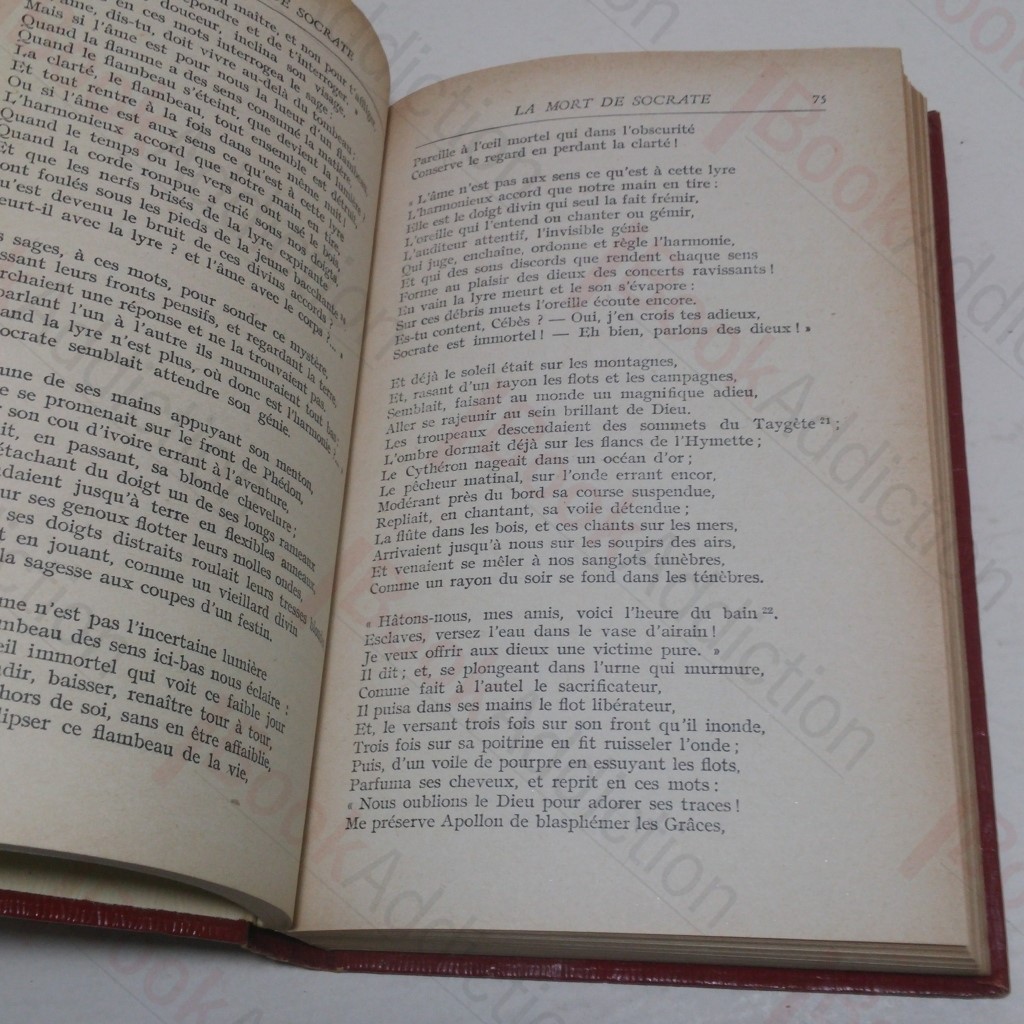 DE SOCRATE
répondre et de t'interroger. »
douceur, inclina son visage,
en ces mots interrogea le sage :
dis-tu, doit vivre au-delà du tombeau;
Mais si l'âme est pour nous la lueur d'un flambeau,
Quand la flamme a des sens consumé la matière,
Quand le flambeau s'éteint, que devient la lumière ?
La clarté, le flambeau, tout ensemble est détruit,
Et tout rentre à la fois dans une même nuit.
Ou si l'âme est aux sens ce qu'est à cette lyre
L'harmonieux accord que notre main en tire,
Quand le temps ou les vers en ont usé le bois,
Quand la corde rompue a crié sous nos doigts,
Et que les nerfs brisés de la lyre expirante
sont foulés sous les pieds de la jeune bacchante
qu'est devenu le bruit de ces divins accords ?
meurt-il avec la lyre ? et l'âme avec le corps ?... »
sages, à ces mots, pour sonder ce mystère,
leurs fronts pensifs, et regardant la terre,
une réponse et ne la trouvaient pas.
parlant l'un à l'autre ils murmuraient tout bas :
la lyre n'est plus, où donc est l'harmonie ?
Socrate semblait attendre son génie.
une de ses mains appuyant son menton,
se promenait sur le front de Phédon,
son cou d'ivoire errant à l'aventure,
en passant, sa blonde chevelure ;
détachant du doigt un de ses longs rameaux
jusqu'à terre en flexibles anneaux,
sur ses genoux flotter leurs molles ondes,
ses doigts distraits roulait leurs tresses
en jouant, comme un vieillard divin
la sagesse aux coupes d'un festin.
n'est pas l'incertaine lumière
flambeau des sens ici-bas nous éclaire :
immortel qui voit ce faible jour
baisser, renaître tour à tour,
hors de soi, sans en être affaiblie,
ce flambeau de la vie,
LA MORT DE SOCRATE 75
Pareille à l'œil mortel qui dans l'obscurité
Conserve le regard en perdant la clarté !
« L'âme n'est pas aux sens ce qu'est à cette lyre
L'harmonieux accord que notre main en tire :
Elle est le doigt divin qui seul la fait frémir,
L'oreille qui l'entend ou chanter ou gémir,
L'auditeur attentif, l'invisible génie
Qui juge, enchaîne, ordonne et règle l'harmonie,
Et qui des sons discords que rendent chaque sens
Forme au plaisir des dieux des concerts ravissants !
En vain la lyre meurt et le son s'évapore :
Sur ces débris muets l'oreille écoute encore.
Es-tu content, Cébès ? — Oui, j'en crois tes adieux,
Socrate est immortel ! — Eh bien, parlons des dieux ! »
Et déjà le soleil était sur les montagnes,
Et, rasant d'un rayon les flots et les campagnes,
Semblait, faisant au monde un magnifique adieu,
Aller se rajeunir au sein brillant de Dieu.
Les troupeaux descendaient des sommets du Taygète 21 ;
L'ombre dormait déjà sur les flancs de l'Hymette ;
Le Cythéron nageait dans un océan d'or ;
Le pêcheur matinal, sur l'onde errant encor,
Modérant près du bord sa course suspendue,
Repliait, en chantant, sa voile détendue ;
La flûte dans les bois, et ces chants sur les mers,
Arrivaient jusqu'à nous sur les soupirs des airs,
Et venaient se mêler à nos sanglots funèbres,
Comme un rayon du soir se fond dans les ténèbres.
« Hâtons-nous, mes amis, voici l'heure du bain 22.
Esclaves, versez l'eau dans le vase d'airain !
Je veux offrir aux dieux une victime pure. »
Il dit ; et, se plongeant dans l'urne qui murmure,
Comme fait à l'autel le sacrificateur,
Il puisa dans ses mains le flot libérateur,
Et, le versant trois fois sur son front qu'il inonde,
Trois fois sur sa poitrine en fit ruisseler l'onde ;
Puis, d'un voile de pourpre en essuyant les flots,
Parfuma ses cheveux, et reprit en ces mots :
« Nous oublions le Dieu pour adorer ses traces !
Me préserve Apollon de blasphémer les Grâces,